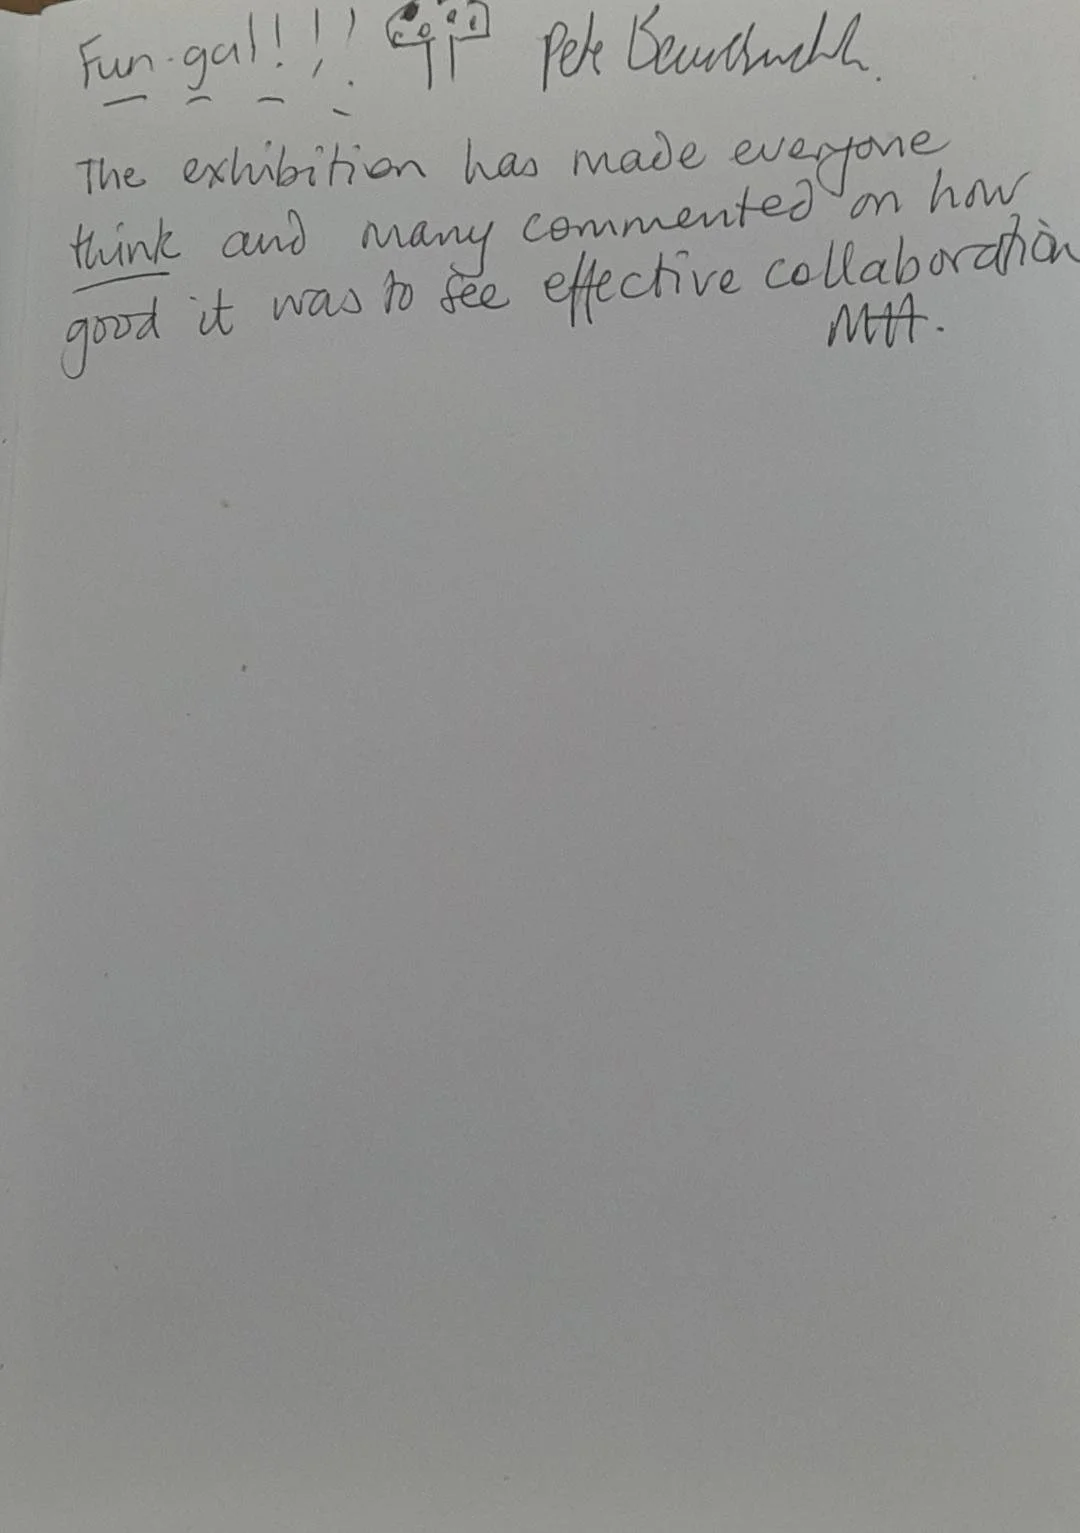 Fun-gal!!! Pete
The exhibition has made everyone
think and many commented on how
good it was to see effective collaboration